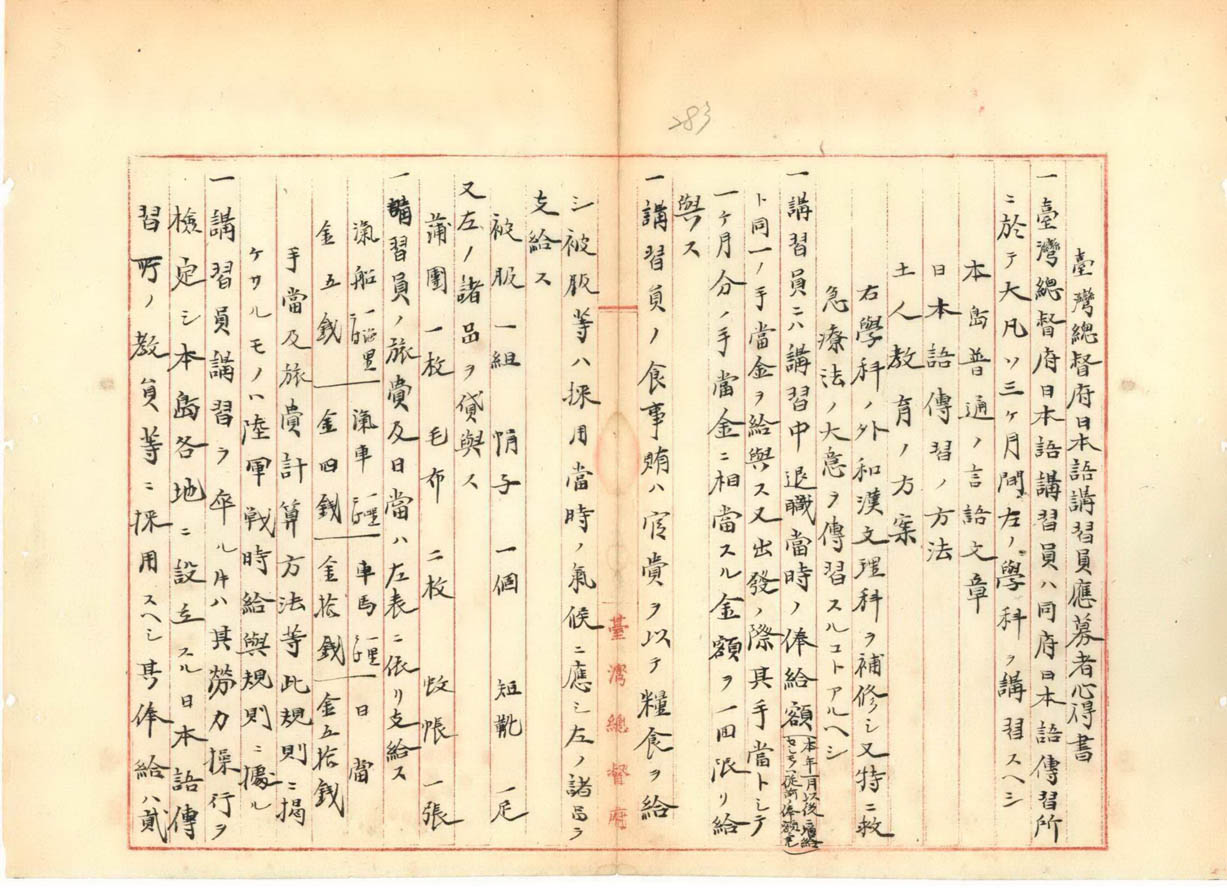 283
臺灣總督府日本語講習員應募者心得書
一臺灣總督府日本語講習員ハ同府日本語傳習所
ニ於テ大凡ソ三ヶ月間左ノ學科ヲ講習スヘシ
本島普通ノ言語文章
日本語傳習ノ方法
土人教育ノ方案
右學科ノ外和漢文理科ヲ補修シ又特ニ救
急療法ノ大意ヲ傳習スルコトアルヘシ
一講習員ニハ講習中退職當時ノ俸給額
本年一月以後ニ增給
ト同一ノ手當金ヲ給與ス又出發ノ際其手當トシテ
一ヶ月分ノ手當金ニ相當スル金額ヲ一回限リ給
與ス
一講習員ノ食事賄ハ官賞ヲ以テ糧食ヲ給
臺灣總督府
シ被服等ハ採用當時ノ氣候ニ應シ左ノ諸品ヲ
支給ス
被服 一組 帽子 一個 短靴 一足
又左ノ諸品ヲ貸與ス
蒲團 一枚 毛布 二枚 蚊帳 一張
一講習員ノ旅費及日當ハ左表ニ依リ支給ス
滊船 一海里 滊車 一哩 車馬 一里 日當
金五錢 金四錢 金拾錢 金五拾錢
手當及旅費計算方法等此規則ニ揭
ケサルモノハ陸軍戰時給與規則ニ據ル
一講習員講習ヲ卒ル片ハ其勞力操行ヲ
檢定シ本島各地ニ設立スル日本語傳
習所ノ教員等ニ採用スヘシ其俸給ハ貳